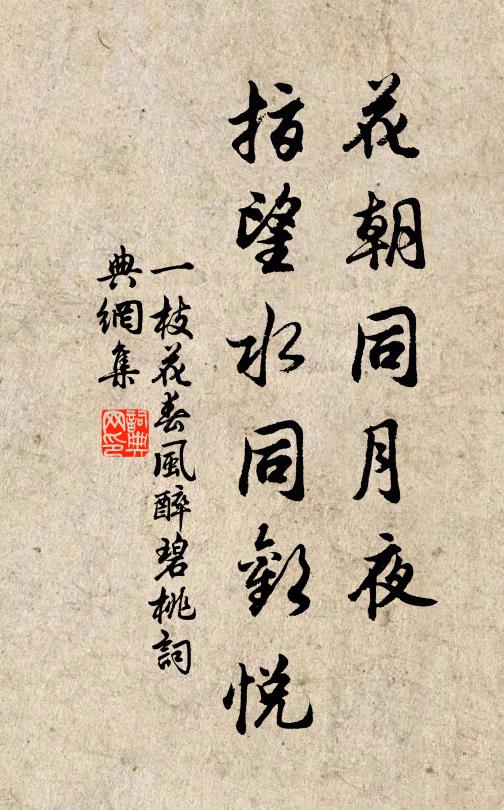 花朝同月夜
指望水同歡悅
一枝花春風醉碧桃詞
典網集
詞典
网印